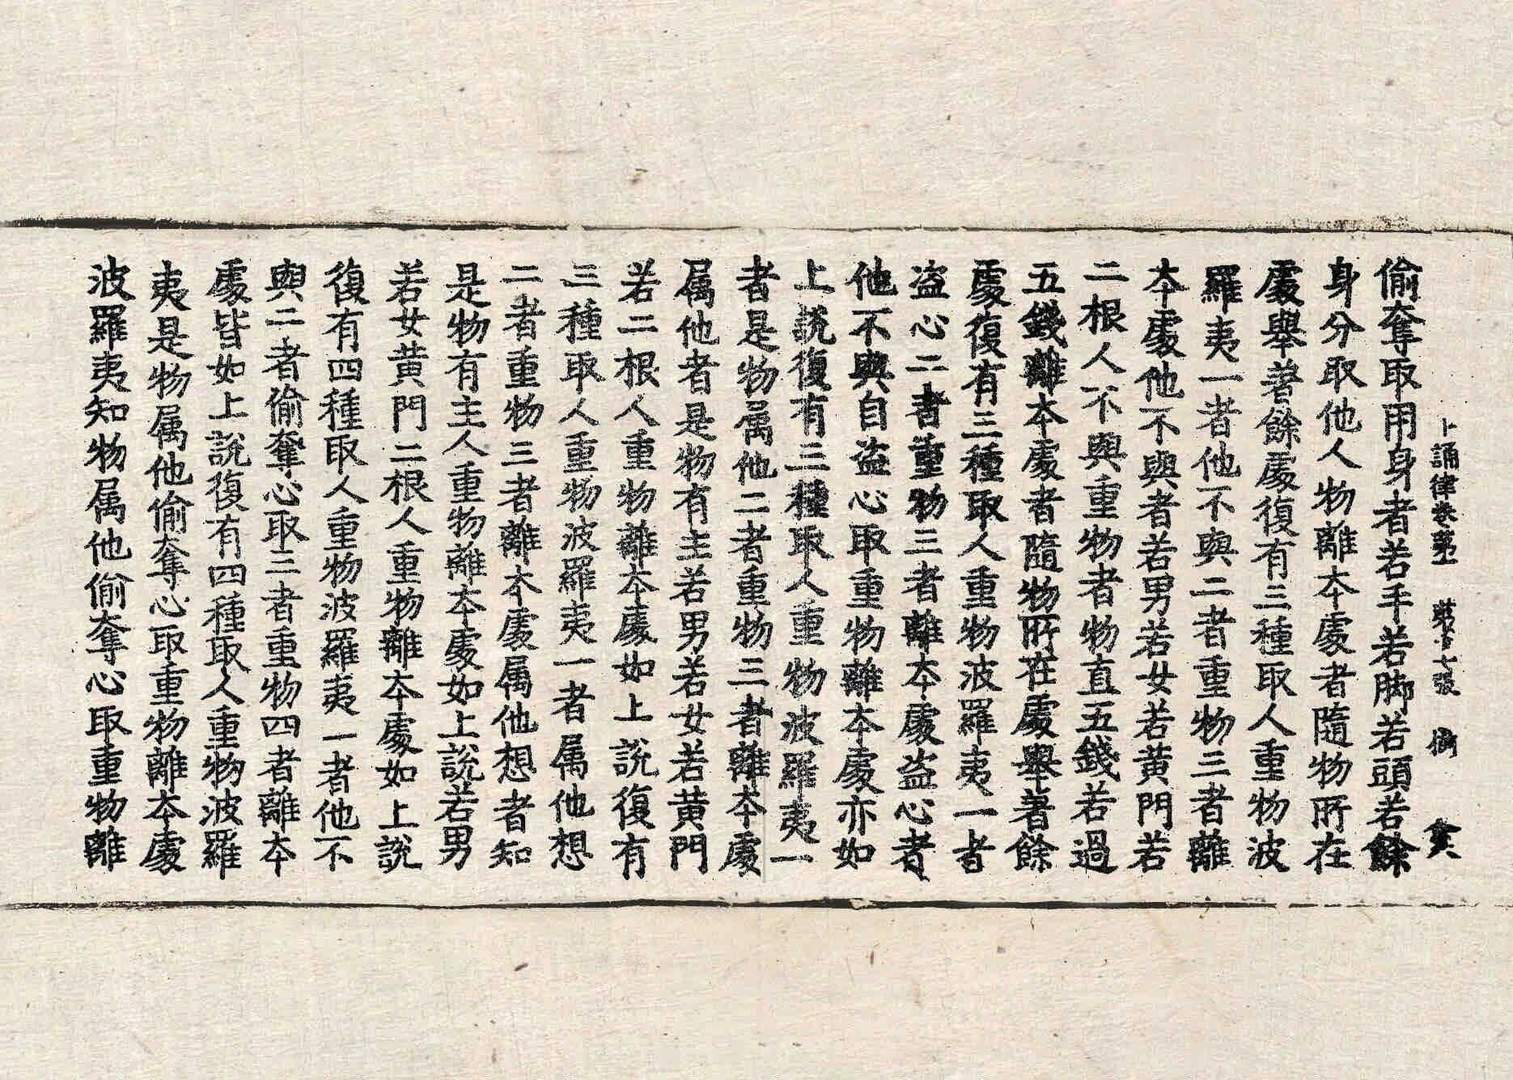 誦律卷第 七張
偷奪取用身者若手若脚若頭若餘
身分取他人物離夲處者隨物所在
處舉著餘處復有三種取人重物波
羅夷一者他不與二者重物三者離
夲處他不與者若男若女若黃門若
二根人不與重物者物直五錢若過
五錢離夲處者隨物所在處舉著餘
處復有三種取人重物波羅夷一者
盗心二者重物三者離夲處盗心者
他不與自盗心取重物離夲處亦如
上說復有三種取人重物波羅夷一
者是物属他二者重物三者離夲處
属他者是物有主若男若女若黃門
若二根人重物離夲處如上說復有
三種取人重物波羅夷一者属他想
二者重物三者離夲處属他想者知
是物有主人重物離夲處如上說若男
若女黃門二根人重物離夲處如上說
復有四種取人重物波羅夷一者他不
與二者偷奪心取三者重物四者離夲
處皆如上說復有四種取人重物波羅
夷是物属他偷奪心取重物離夲處
波羅夷知物属他偷奪心取重物離